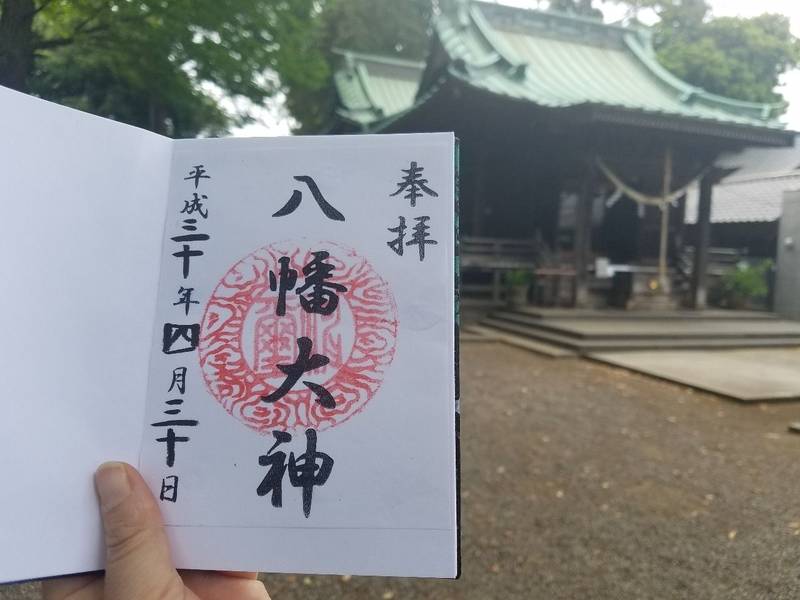 奉拝
八幡大神
平成三十年四月三十日